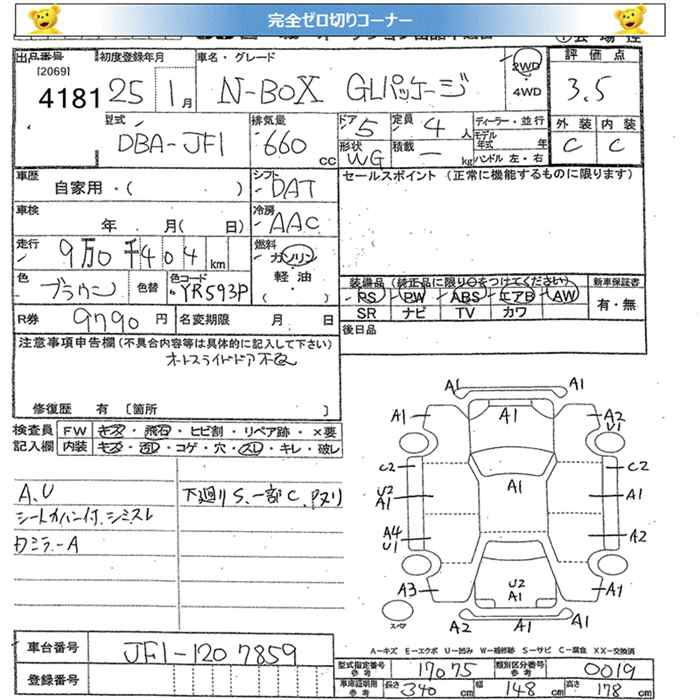 完全ゼロ切りコーナー
出品番号 初度登録年月 車名・グレード 2WD 評価点
[2069]
4181 25 1月 N-BOX GLパッケージ 4WD 3.5
型式 排気量 ドア 5 定員 4 人 ディーラー・並行 外装 内装
DBA-JF1 660 cc 形状 WG 積載 ー kg モデル年式 年 C C
ハンドル 左・右
車歴 シフト セールスポイント (正常に機能するものに限ります)
自家用・( ) DAT
車検 冷房
年 月( 日) AAC
走行 燃料
9万0千404km ガソリン
色 ブラウン 色替 色コード YR593P 軽油
( )
装備品 (純正品に限り○をつけてください) 新車保証書
PS PW ABS エアB AW 有・無
SR ナビ TV カワ
R券 9790 円 名変期限 月 日 後日品
注意事項申告欄(不具合内容等は具体的に記入して下さい)
オートスライドドア不良
修復歴 有 〔箇所 〕
検査員 FW キズ・飛石・ヒビ割・リペア跡・×要
記入欄 内装 キズ・汚レ・コゲ・穴・スレ・キレ・破レ
A、U 下廻りS、一部C、Pヌリ
シートカバー付、シミスレ
Dミラ-A
A1 A1
A1 A1 A2
U1
C2 C2
U2 A1 A1
A1
A4 A2
U1
A3 U2 A1
A1
スペア A2 A1
A-キズ E-エクボ U-凹み W-補修跡 S-サビ C-腐食 XX-交換済
車台番号 JF1-1207859
登録番号
型式指定番号 参考 17075 類別区分番号 参考 0019
車庫証明用 参考 長さ 340 cm 幅 148 cm 高さ 178 cm